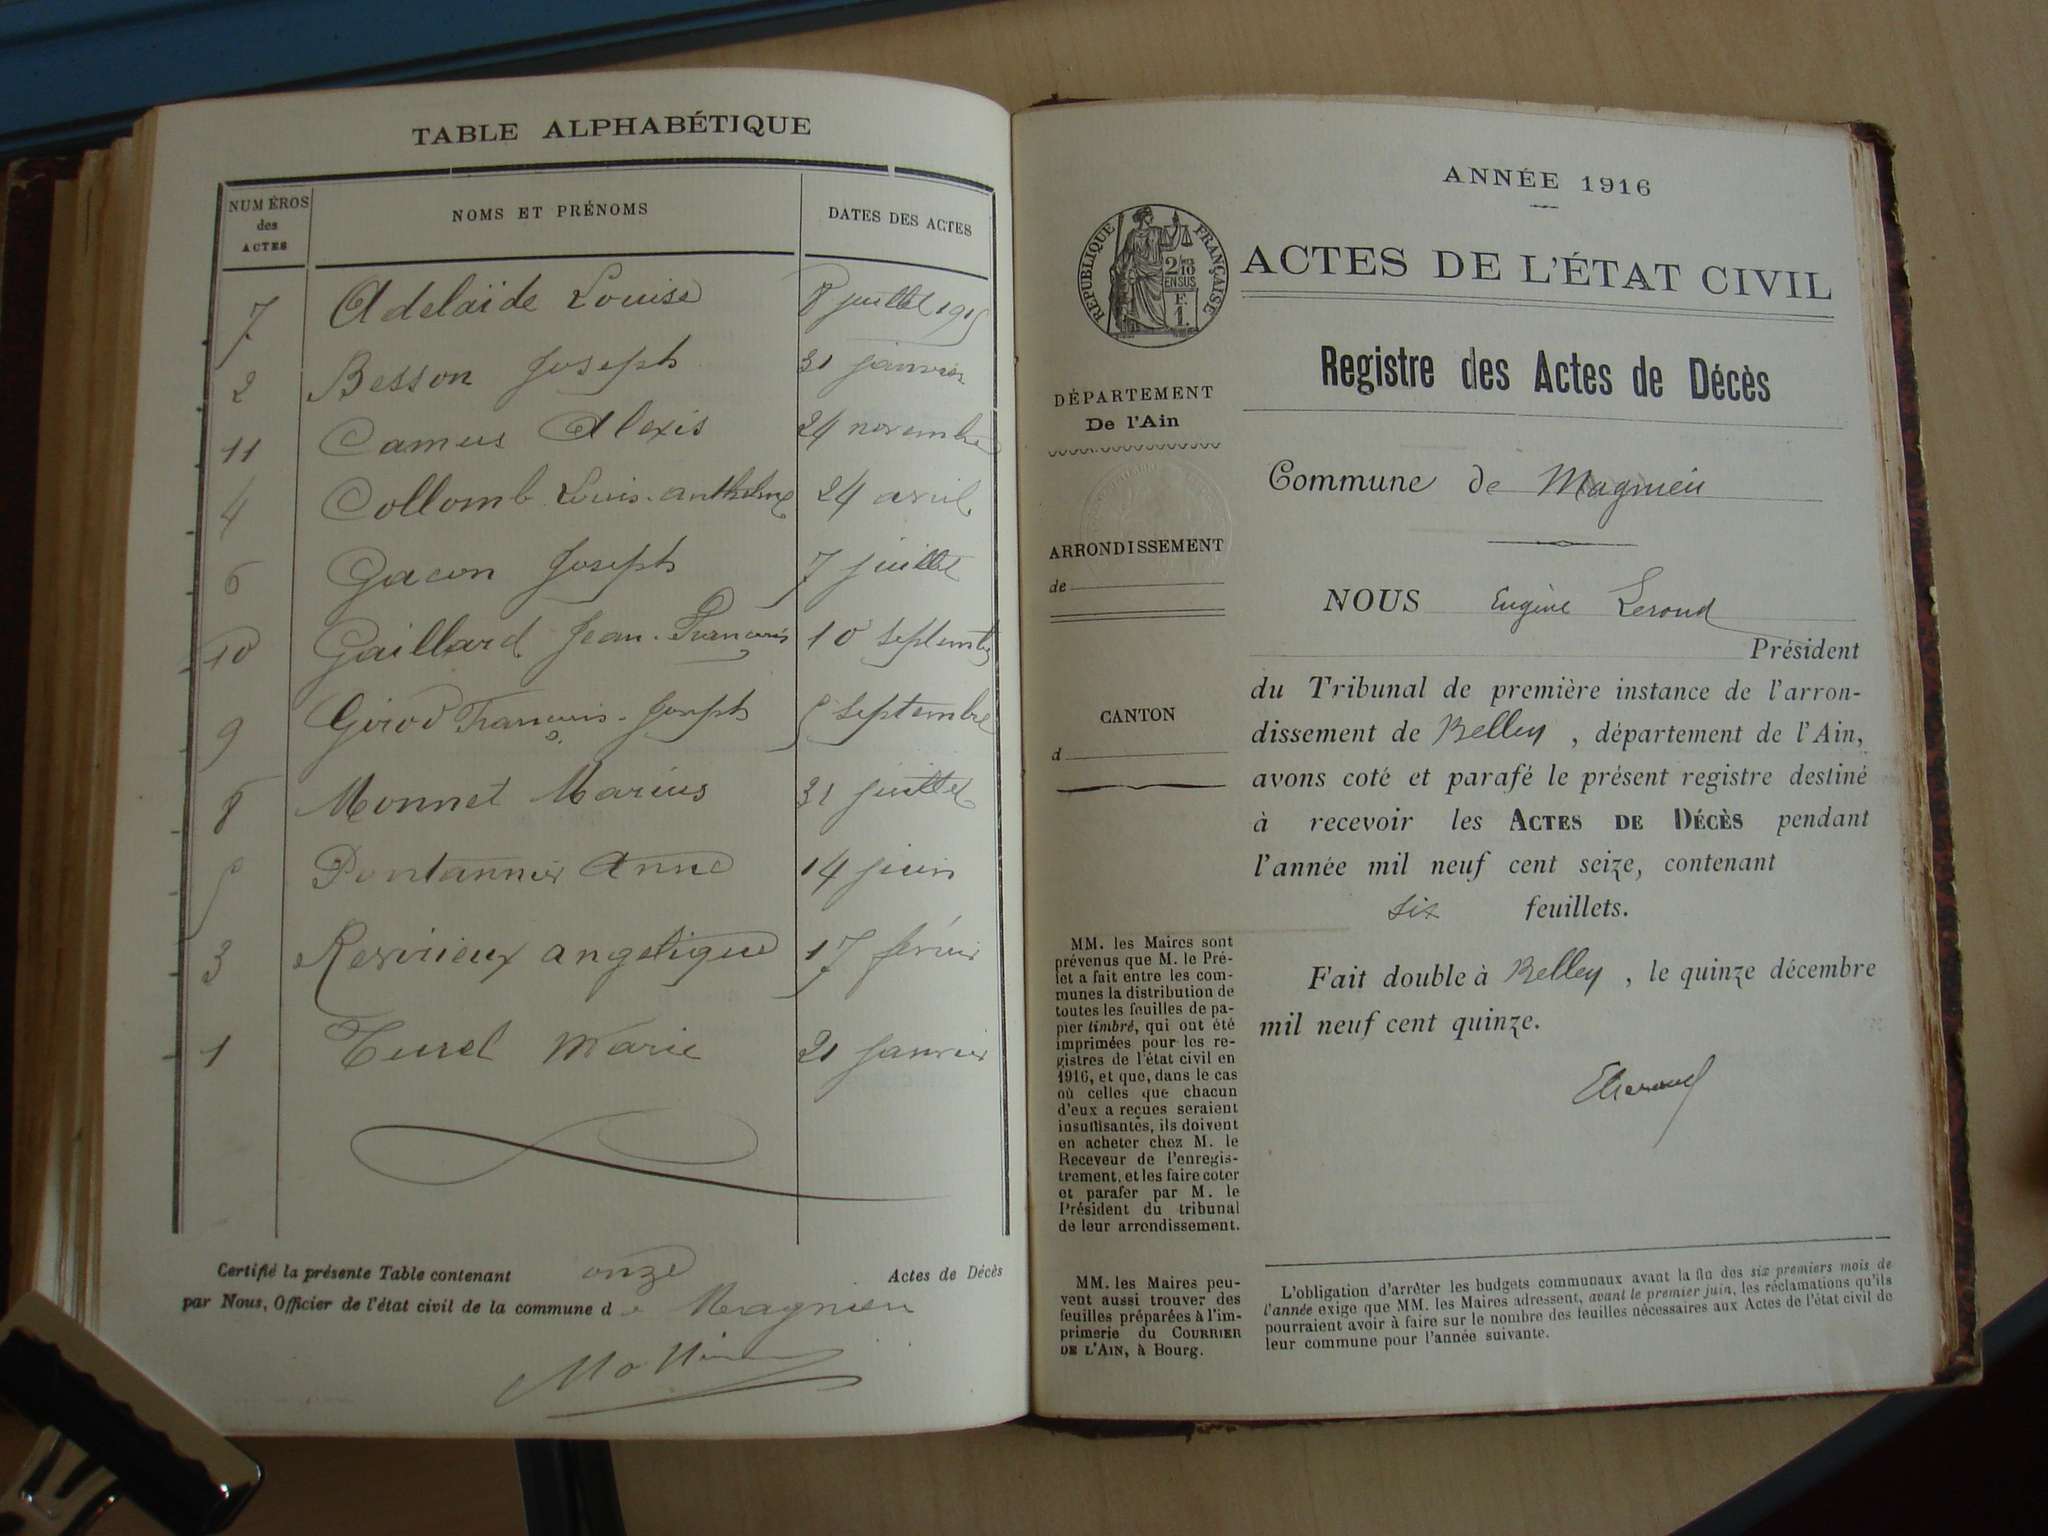 TABLE ALPHABÉTIQUE
NUMÉROS des ACTES NOMS ET PRÉNOMS DATES DES ACTES
7 Adelaïde Louise 8 juillet 1915
2 Besson Joseph 31 janvier
11 Camus Alexis 24 novembre
4 Collomb Louis-anthelme 24 avril
6 Gacon Joseph 7 juillet
10 Gaillard Jean-François 10 septembre
9 Girod François-Joseph 5 septembre
8 Monnet Marius 31 juillet
5 Pontannier Anne 14 juin
3 angelique 17 février
1 Turel Marie 21 janvier
Certifié la présente Table contenant onze Actes de Décès
par Nous, Officier de l'état civil de la commune de Magnieu
ANNÉE 1916
RÉPUBLIQUE FRANÇAISE
2/10
EN SUS
F.
1.
ACTES DE L'ÉTAT CIVIL
Registre des Actes de Décès
DÉPARTEMENT
De l'Ain
Commune de Magnieu
ARRONDISSEMENT
de
NOUS Eugène
Président
CANTON
d
du Tribunal de première instance de l'arron-
dissement de Belley, département de l'Ain,
avons coté et parafé le présent registre destiné
à recevoir les ACTES DE DÉCÈS pendant
l'année mil neuf cent seize, contenant
six feuillets.
Fait double à Belley, le quinze décembre
mil neuf cent quinze.
MM. les Maires sont
prévenus que M. le Pré-
fet a fait entre les com-
munes la distribution de
toutes les feuilles de pa-
pier timbré, qui ont été
imprimées pour les re-
gistres de l'état civil en
1916, et que, dans le cas
où celles que chacun
d'eux a reçues seraient
insuffisantes, ils doivent
en acheter chez M. le
Receveur de l'enregis-
trement, et les faire coter
et parafer par M. le
Président du tribunal
de leur arrondissement.
MM. les Maires peu-
vent aussi trouver des
feuilles préparées à l'im-
primerie du COURRIER
DE L'AIN, à Bourg.
L'obligation d'arrêter les budgets communaux avant la fin des six premiers mois de
l'année exige que MM. les Maires adressent, avant le premier juin, les réclamations qu'ils
pourraient avoir à faire sur le nombre des feuilles nécessaires aux Actes de l'état civil de
leur commune pour l'année suivante.